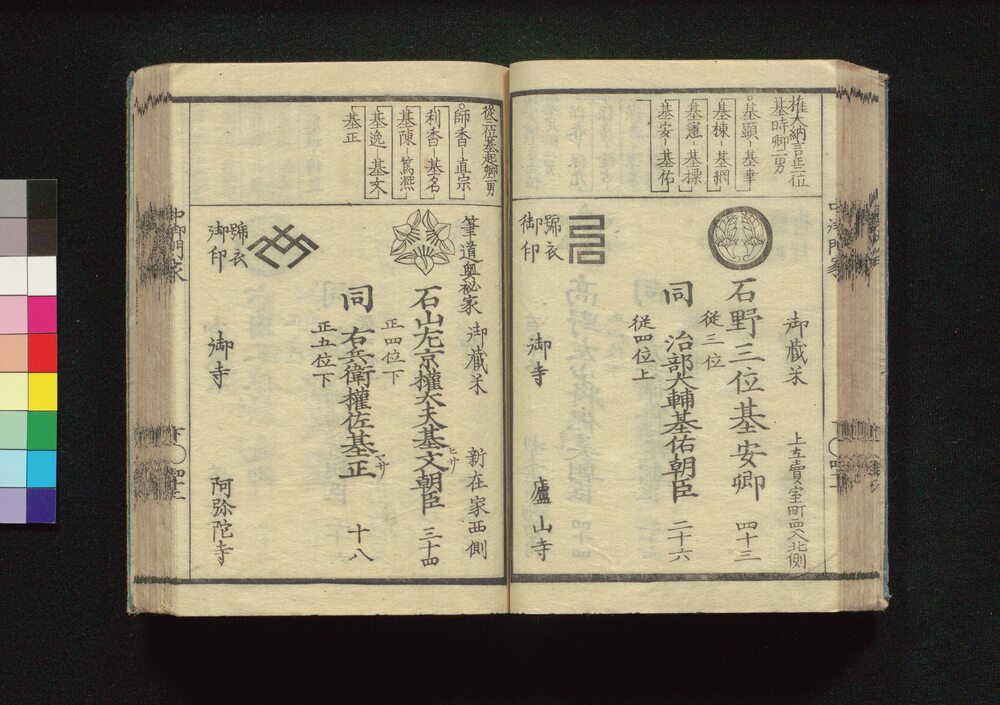 権大納言正二位
基時卿二男
基顕-基幸
基棟-基綱
基憲-基操
基安-基佑
御蔵米
上立売室町西入北側
石野三位基安卿
四十三
従三位
同
治部大輔基佑朝臣
二十六
従四位上
号衣
御印
御寺
廬山寺
従二位基起卿二男
師香-直宗
利香-基名
基陳-篤凞
基逸-基文
基正
筆道奥祕家
御蔵米
新在家西側
石山左京權大夫基文朝臣
ヒサ
三十四
正四位下
同
右兵衛權佐基正
マサ
十八
正五位下
号衣
御印
御寺
阿弥陀寺
中御門家